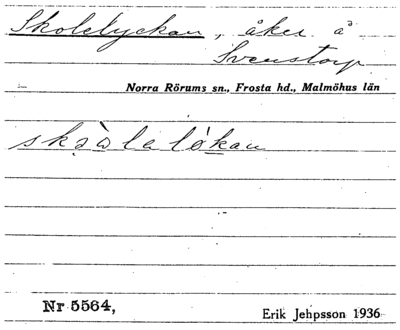 Skolelyckan, åker å
Svenstorp
Norra Rörums sn., Frosta hd., Malmöhus län
Nr 5564,
Erik Jehpsson 1936